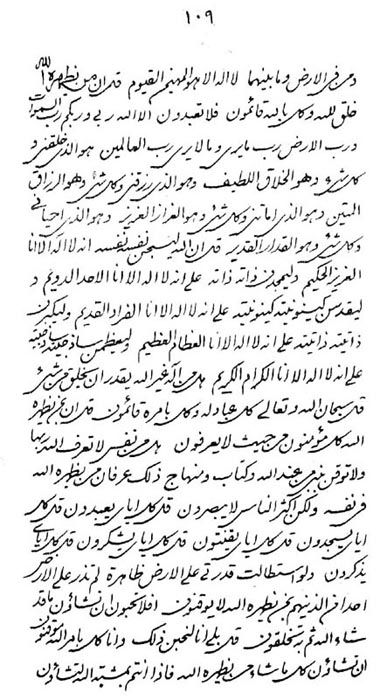 ١٠٩
ومن فى الارض وما بينهما لا اله الا هو المهيمن القيوم قل ان من يظهره الله
خلق لله وكل بالله قائمون فلا تعبدون الا الله ربى وربكم رب السموات
ورب الارض رب ما يرى وما لا يرى رب العالمين هو الذى خلقنى و
كل شىء وهو الخلاق اللطيف وهو الذى رزقنى وكل شىء وهو الرزاق
المتين وهو الذى اماتنى وكل شىء وهو العزاز العزيز وهو الذى احيانى
وكل شىء وهو القدار القدير قل ان الله ليسبحن نفسه نفسه انه لا اله الا انا
العزيز الحكيم وليمجدن ذاته ذاته على انه لا اله الا انا الاحد الدوم و
ليقدسن كينونيته كينونيته على انه لا اله الا انا الفراد القديم وليكبرن
ذاتيته ذاتيته على انه لا اله الا انا العظام العظيم وليعظمن ساذجيته ساذجيته
على انه لا اله الا انا الكرام الكريم هل من اله غير الله يقدر ان يخلق من شىء
قل سبحان الله وتعالى كل عباد له وكل بامره قائمون قل ان بمن يظهره
الله كل مؤمنون من حيث لا يعرفون هل من نفس لا تعرف الله ربها
ولا توقن بنبى من عند الله وكتاب ومنهاج ذلك عرفان من يظهره الله
فى نفسه ولكن اكثر الناس لا يبصرون قل كل اياى يعبدون قل كل
اياى يسجدون قل كل اياى يقنتون قل كل اياى يشكرون قل كل اياى
يذكرون ولو استطالت قدرتى على الارض ظاهرة لم نذر على الارض
احدا من الذينهم بمن يظهره الله لا يوقنون افلا تحبون ان تشاؤن ما قد
شاء الله ثم ستخلقون قل بلى انا لنحبن ذلك وانا كل بامر الله موقنون
ان تشاؤن كل ما يشاء من يظهره الله فاذا انتم بمشية الله تشاؤن